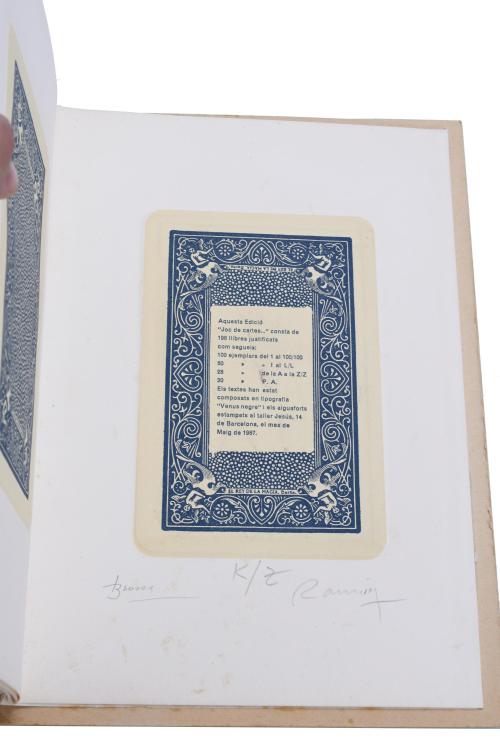 Aquesta Edició
"Joc de cartes..." consta de
198 llibres justificats
com segueix:
100 exemplars del 1 al 100/100
50 » » I al L/L
28 » de la A a la Z/Z
20 » P. A.
Els textes han estat
composats en tipografia
"Venus negre" i els aiguaforts
estampats al taller Jesús, 14
de Barcelona, el mes de
Maig de 1987.
EL REY DE LA MAGIA, Barna.
Brossa K/Z